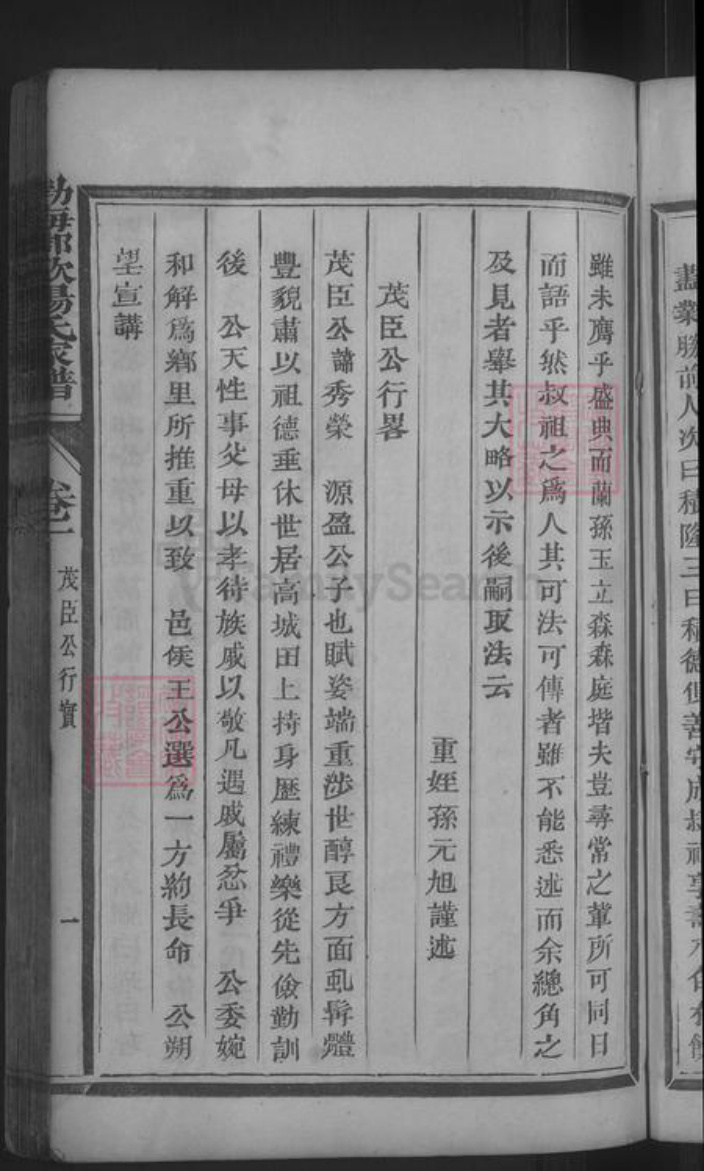 盡業勝前人次曰積隆三曰積德
雖未膺乎盛典而蘭孫玉立森森庭堦夫豈尋常之輩所可同日
而語乎然叔祖之爲人其可法可傳者雖不能悉述而余總角之
及見者舉其大略以示後嗣取法云
重姪孫元旭謹述
茂臣公行畧
茂臣公諱秀榮 源盈公子也賦姿端重涉世醇良方面虬髯體
豐貌肅以祖德垂休世居高城田上持身歷練禮樂從先儉勤訓
後 公天性事父母以孝待族戚以敬凡遇戚屬忿爭 公委婉
和解爲鄉里所推重以致 邑侯王公選爲一方約長命 公朔
望宣講
勃海郡歐陽氏家譜 卷 茂臣公行實 一
FamilySearch